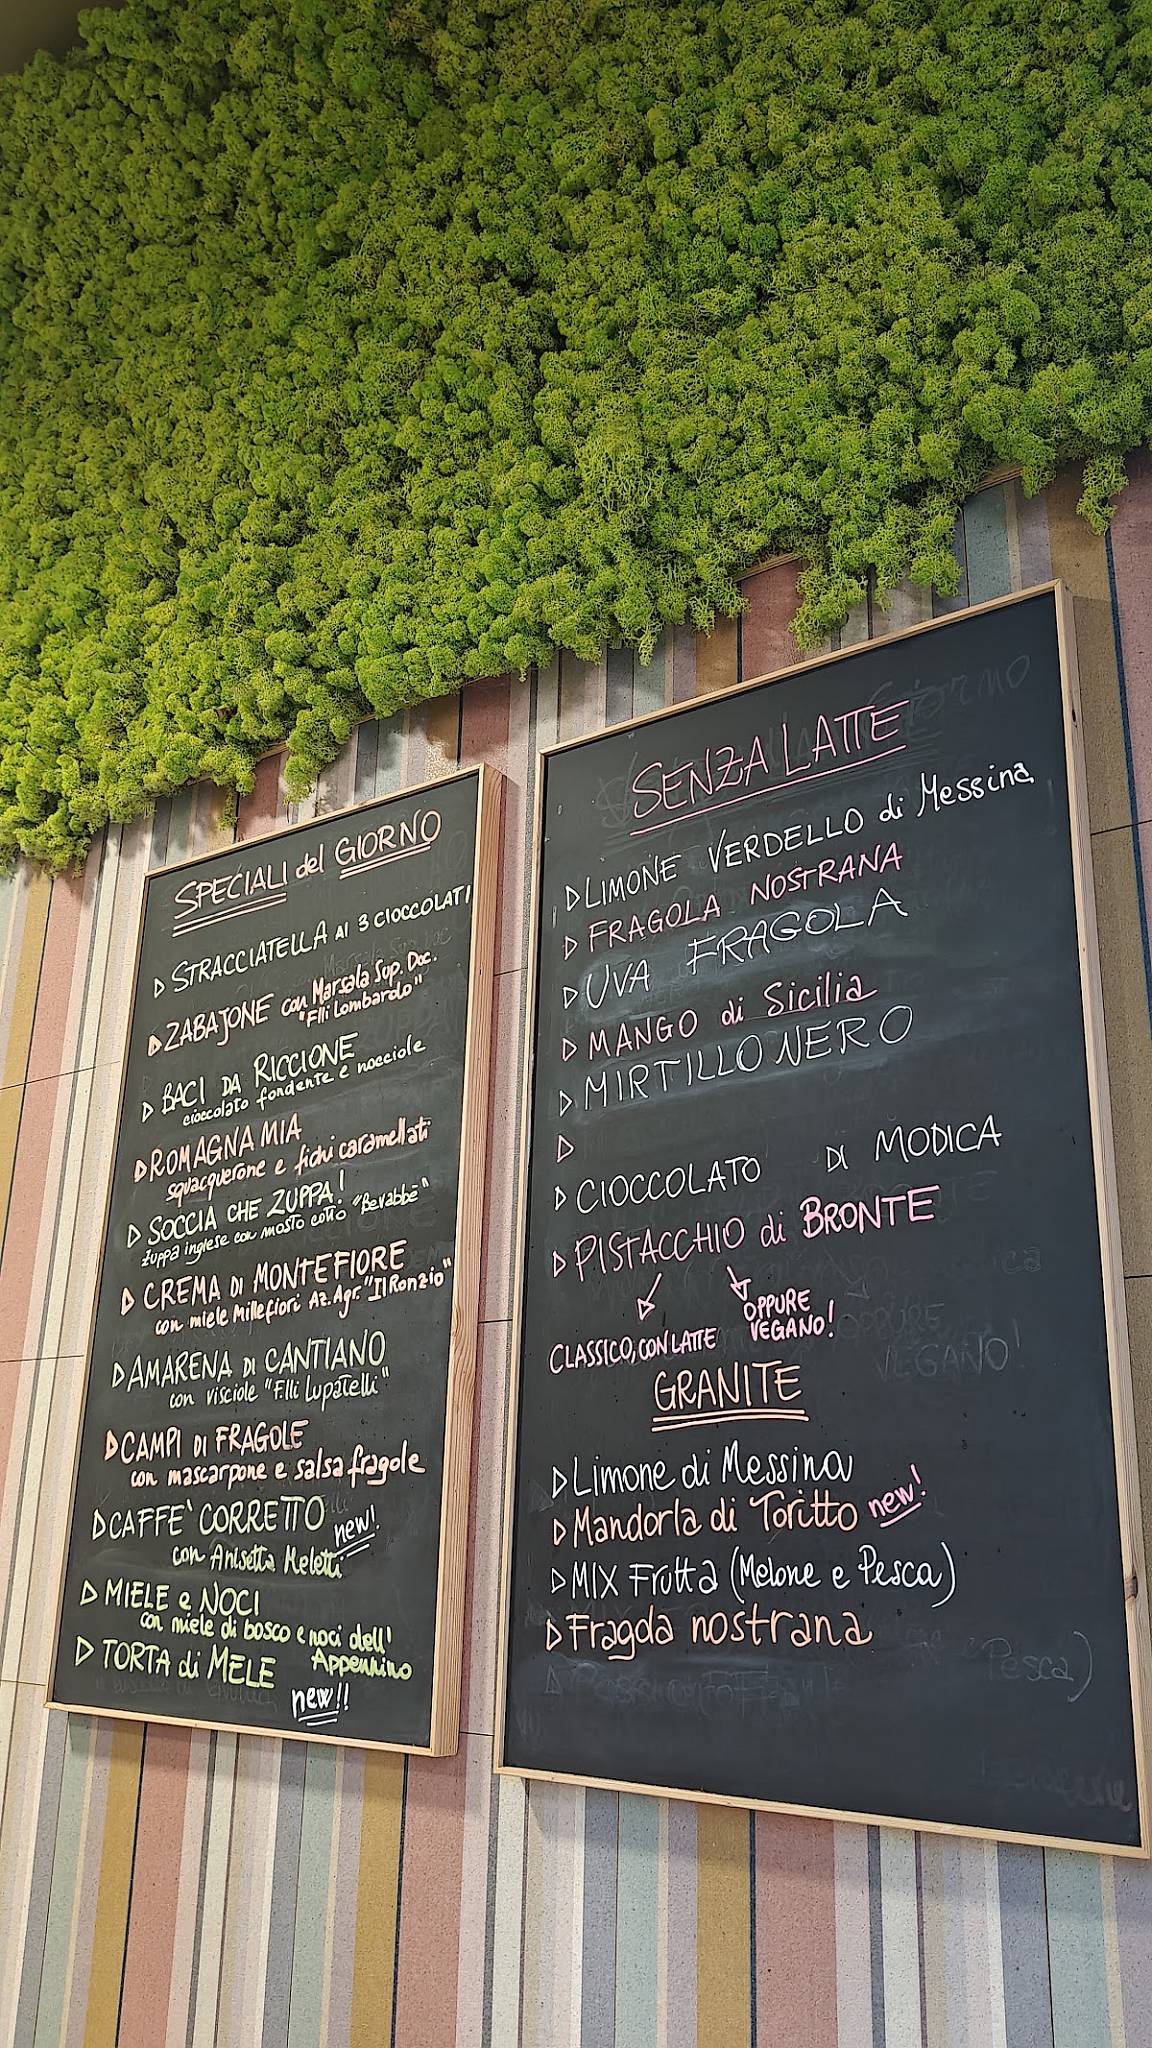 SPECIALI del GIORNO
STRACCIATELLA AI 3 CIOCCOLATI
ZABAJONE con Marsala Sup. Doc.
"F.lli Lombardo"
BACI DA RICCIONE
cioccolato fondente e nocciole
ROMAGNA MIA
squacquerone e fichi caramellati
SOCCIA CHE ZUPPA!
zuppa inglese con mosto cotto "Bevabbè"
CREMA DI MONTEFIORE
con miele Millefiori Az. Agr. "Il Ronzio"
AMARENA DI CANTIANO
con visciole "F.lli Lupatelli"
CAMPI DI FRAGOLE
con mascarpone e salsa fragole
CAFFE' CORRETTO new!
con Anisetta Meletti
MIELE e NOCI
con miele di bosco e noci dell'
Appennino
TORTA di MELE
new!!
SENZA LATTE
LIMONE VERDELLO di Messina
FRAGOLA NOSTRANA
UVA FRAGOLA
MANGO di Sicilia
MIRTILLO NERO
CIOCCOLATO DI MODICA
PISTACCHIO di BRONTE
CLASSICO, CON LATTE
OPPURE
VEGANO!
GRANITE
Limone di Messina
Mandorla di Toritto new!
MIX Frutta (Melone e Pesca)
Fragola nostrana